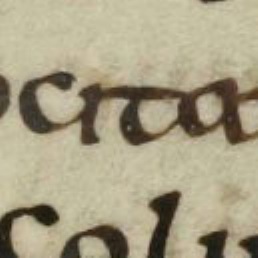 ocita
colu